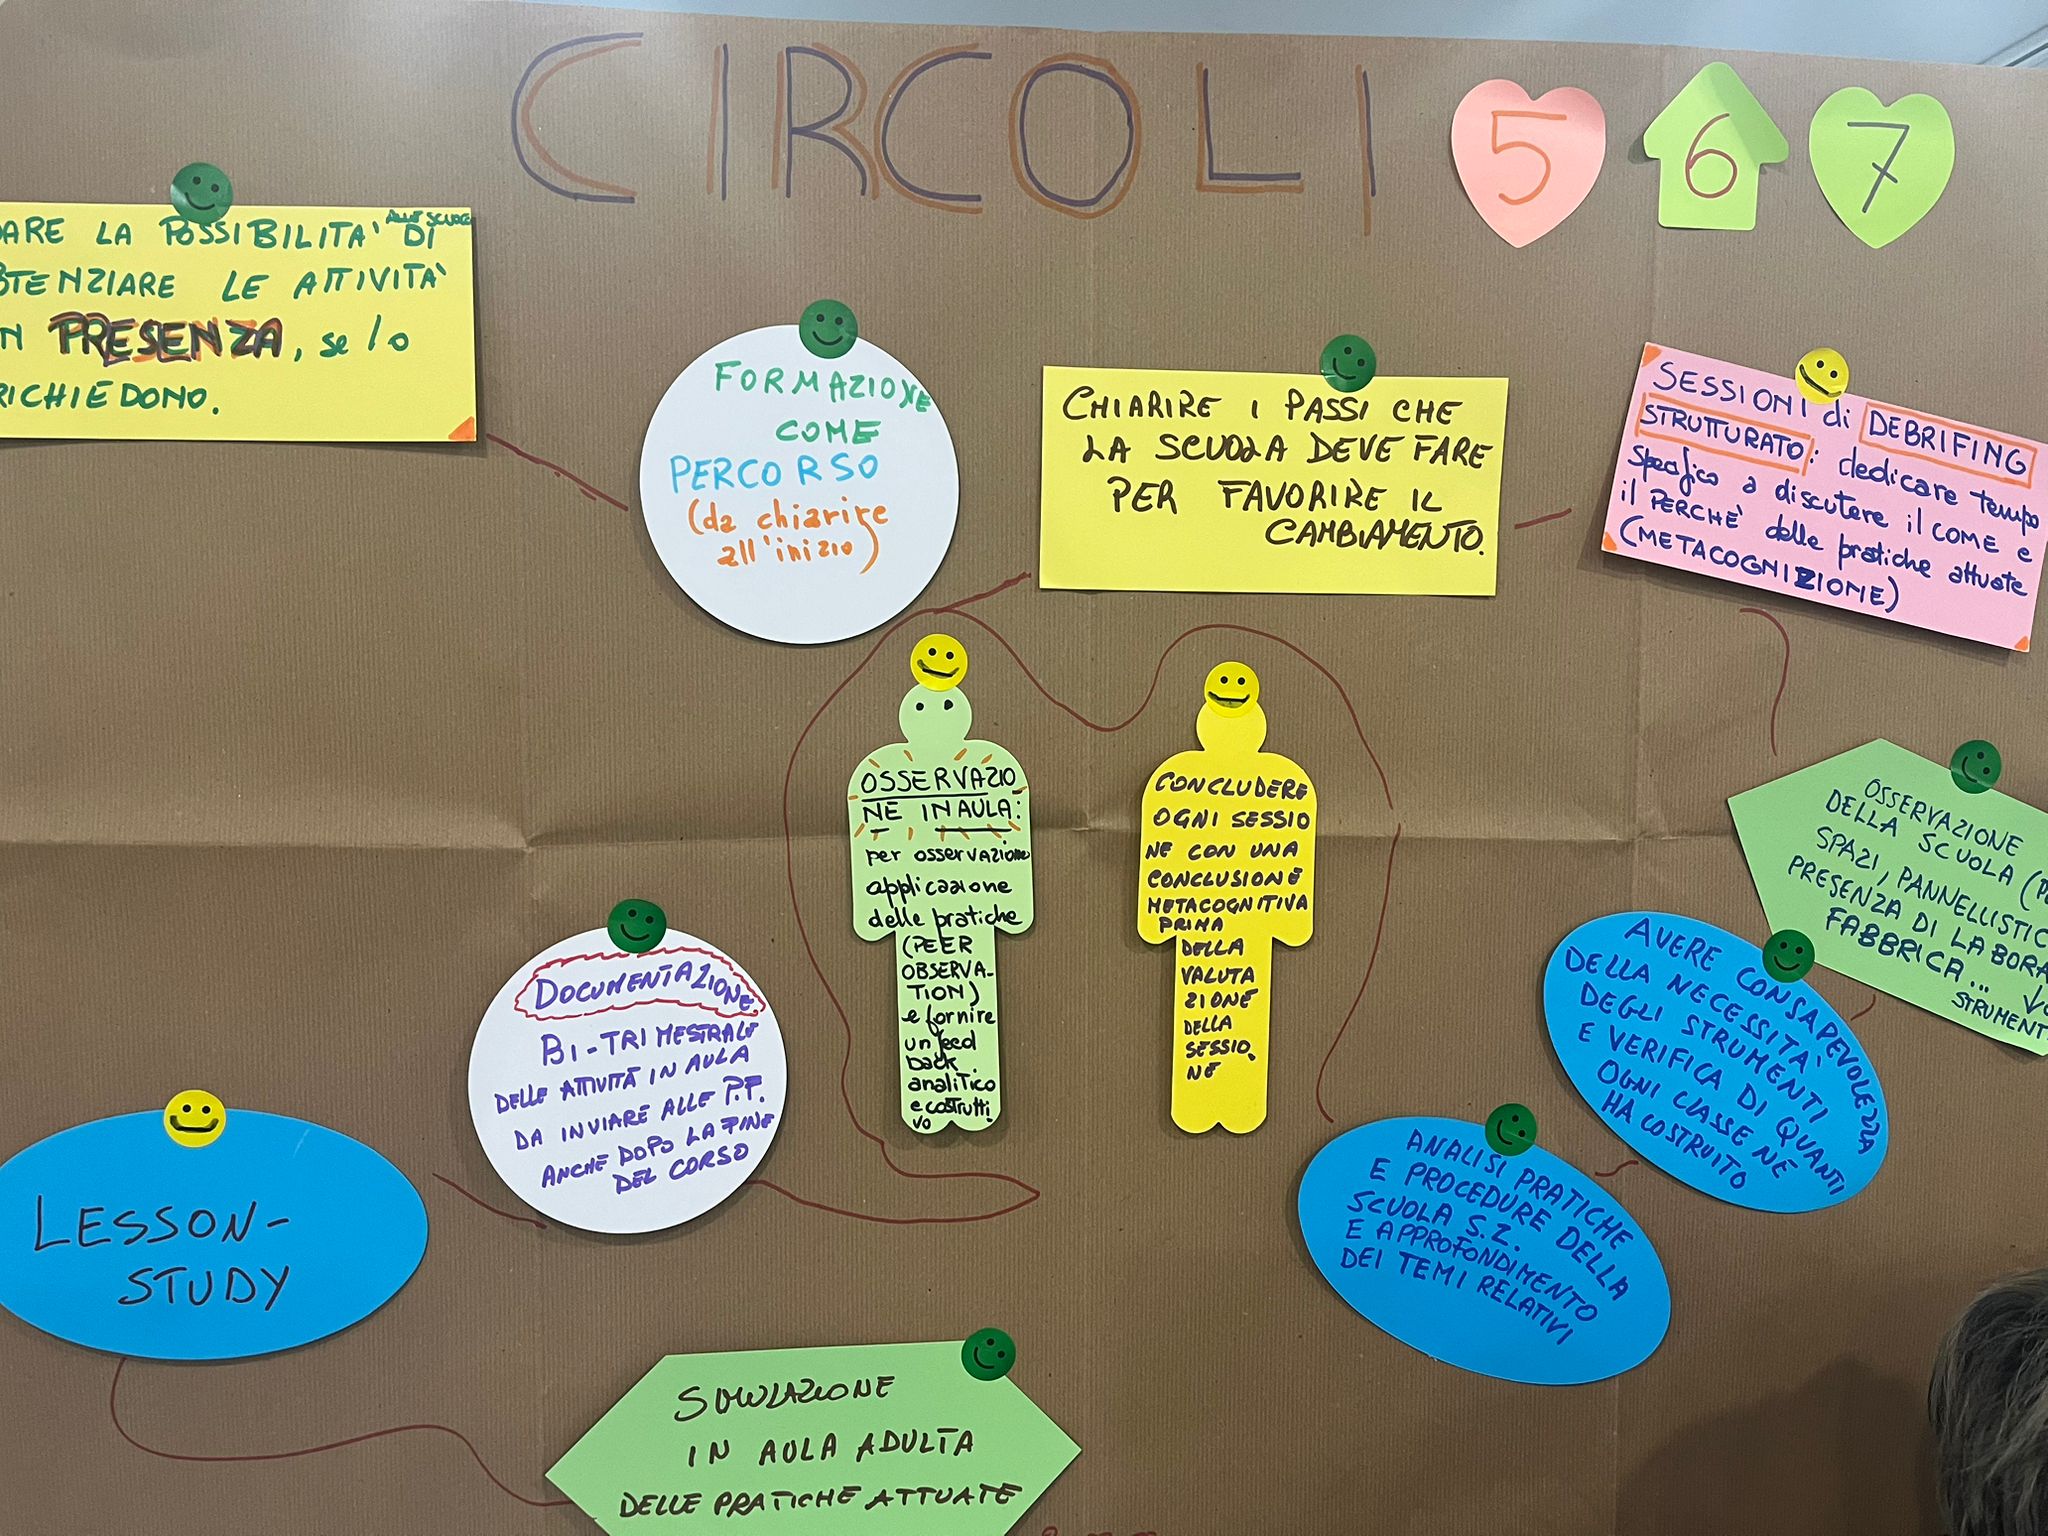 CIRCOLI 5 6 7
DARE LA POSSIBILITA' ALLE SCUOLE DI
POTENZIARE LE ATTIVITA'
IN PRESENZA, se lo
RICHIEDONO.
FORMAZIONE
COME
PERCORSO
(da chiarire
all'inizio)
CHIARIRE I PASSI CHE
LA SCUOLA DEVE FARE
PER FAVORIRE IL
CAMBIAMENTO.
SESSIONI di DEBRIFING
STRUTTURATO: dedicare tempo
specifico a discutere il COME e
il PERCHE' delle pratiche attuate
(METACOGNIZIONE)
OSSERVAZIO
NE IN AULA:
per osservazione
applicazione
delle pratiche
(PEER
OBSERVA-
TION)
e fornire
un feed
back
analitico
e costrutti
vo
CONCLUDERE
OGNI SESSIO
NE CON UNA
CONCLUSIONE
METACOGNITIVA
PRIMA
DELLA
VALUTA
ZIONE
DELLA
SESSIO.
NE
OSSERVAZIONE
DELLA SCUOLA
SPAZI, PANNELLISTIC
PRESENZA DI LABORA
FABBRICA...
STRUMENT
AVERE CONSAPEVOLEZZA
DELLA NECESSITA'
DEGLI STRUMENTI
E VERIFICA DI QUANTI
OGNI CLASSE NE
HA COSTRUITO
DOCUMENTAZIONE
BI-TRIMESTRALE
DELLE ATTIVITÀ IN AULA
DA INVIARE ALLE P.F.
ANCHE DOPO LA FINE
DEL CORSO
ANALISI PRATICHE
E PROCEDURE DELLA
SCUOLA S.Z.
E APPROFONDIMENTO
DEI TEMI RELATIVI
LESSON-
STUDY
SIMULAZIONE
IN AULA ADULTA
DELLE PRATICHE ATTUATE